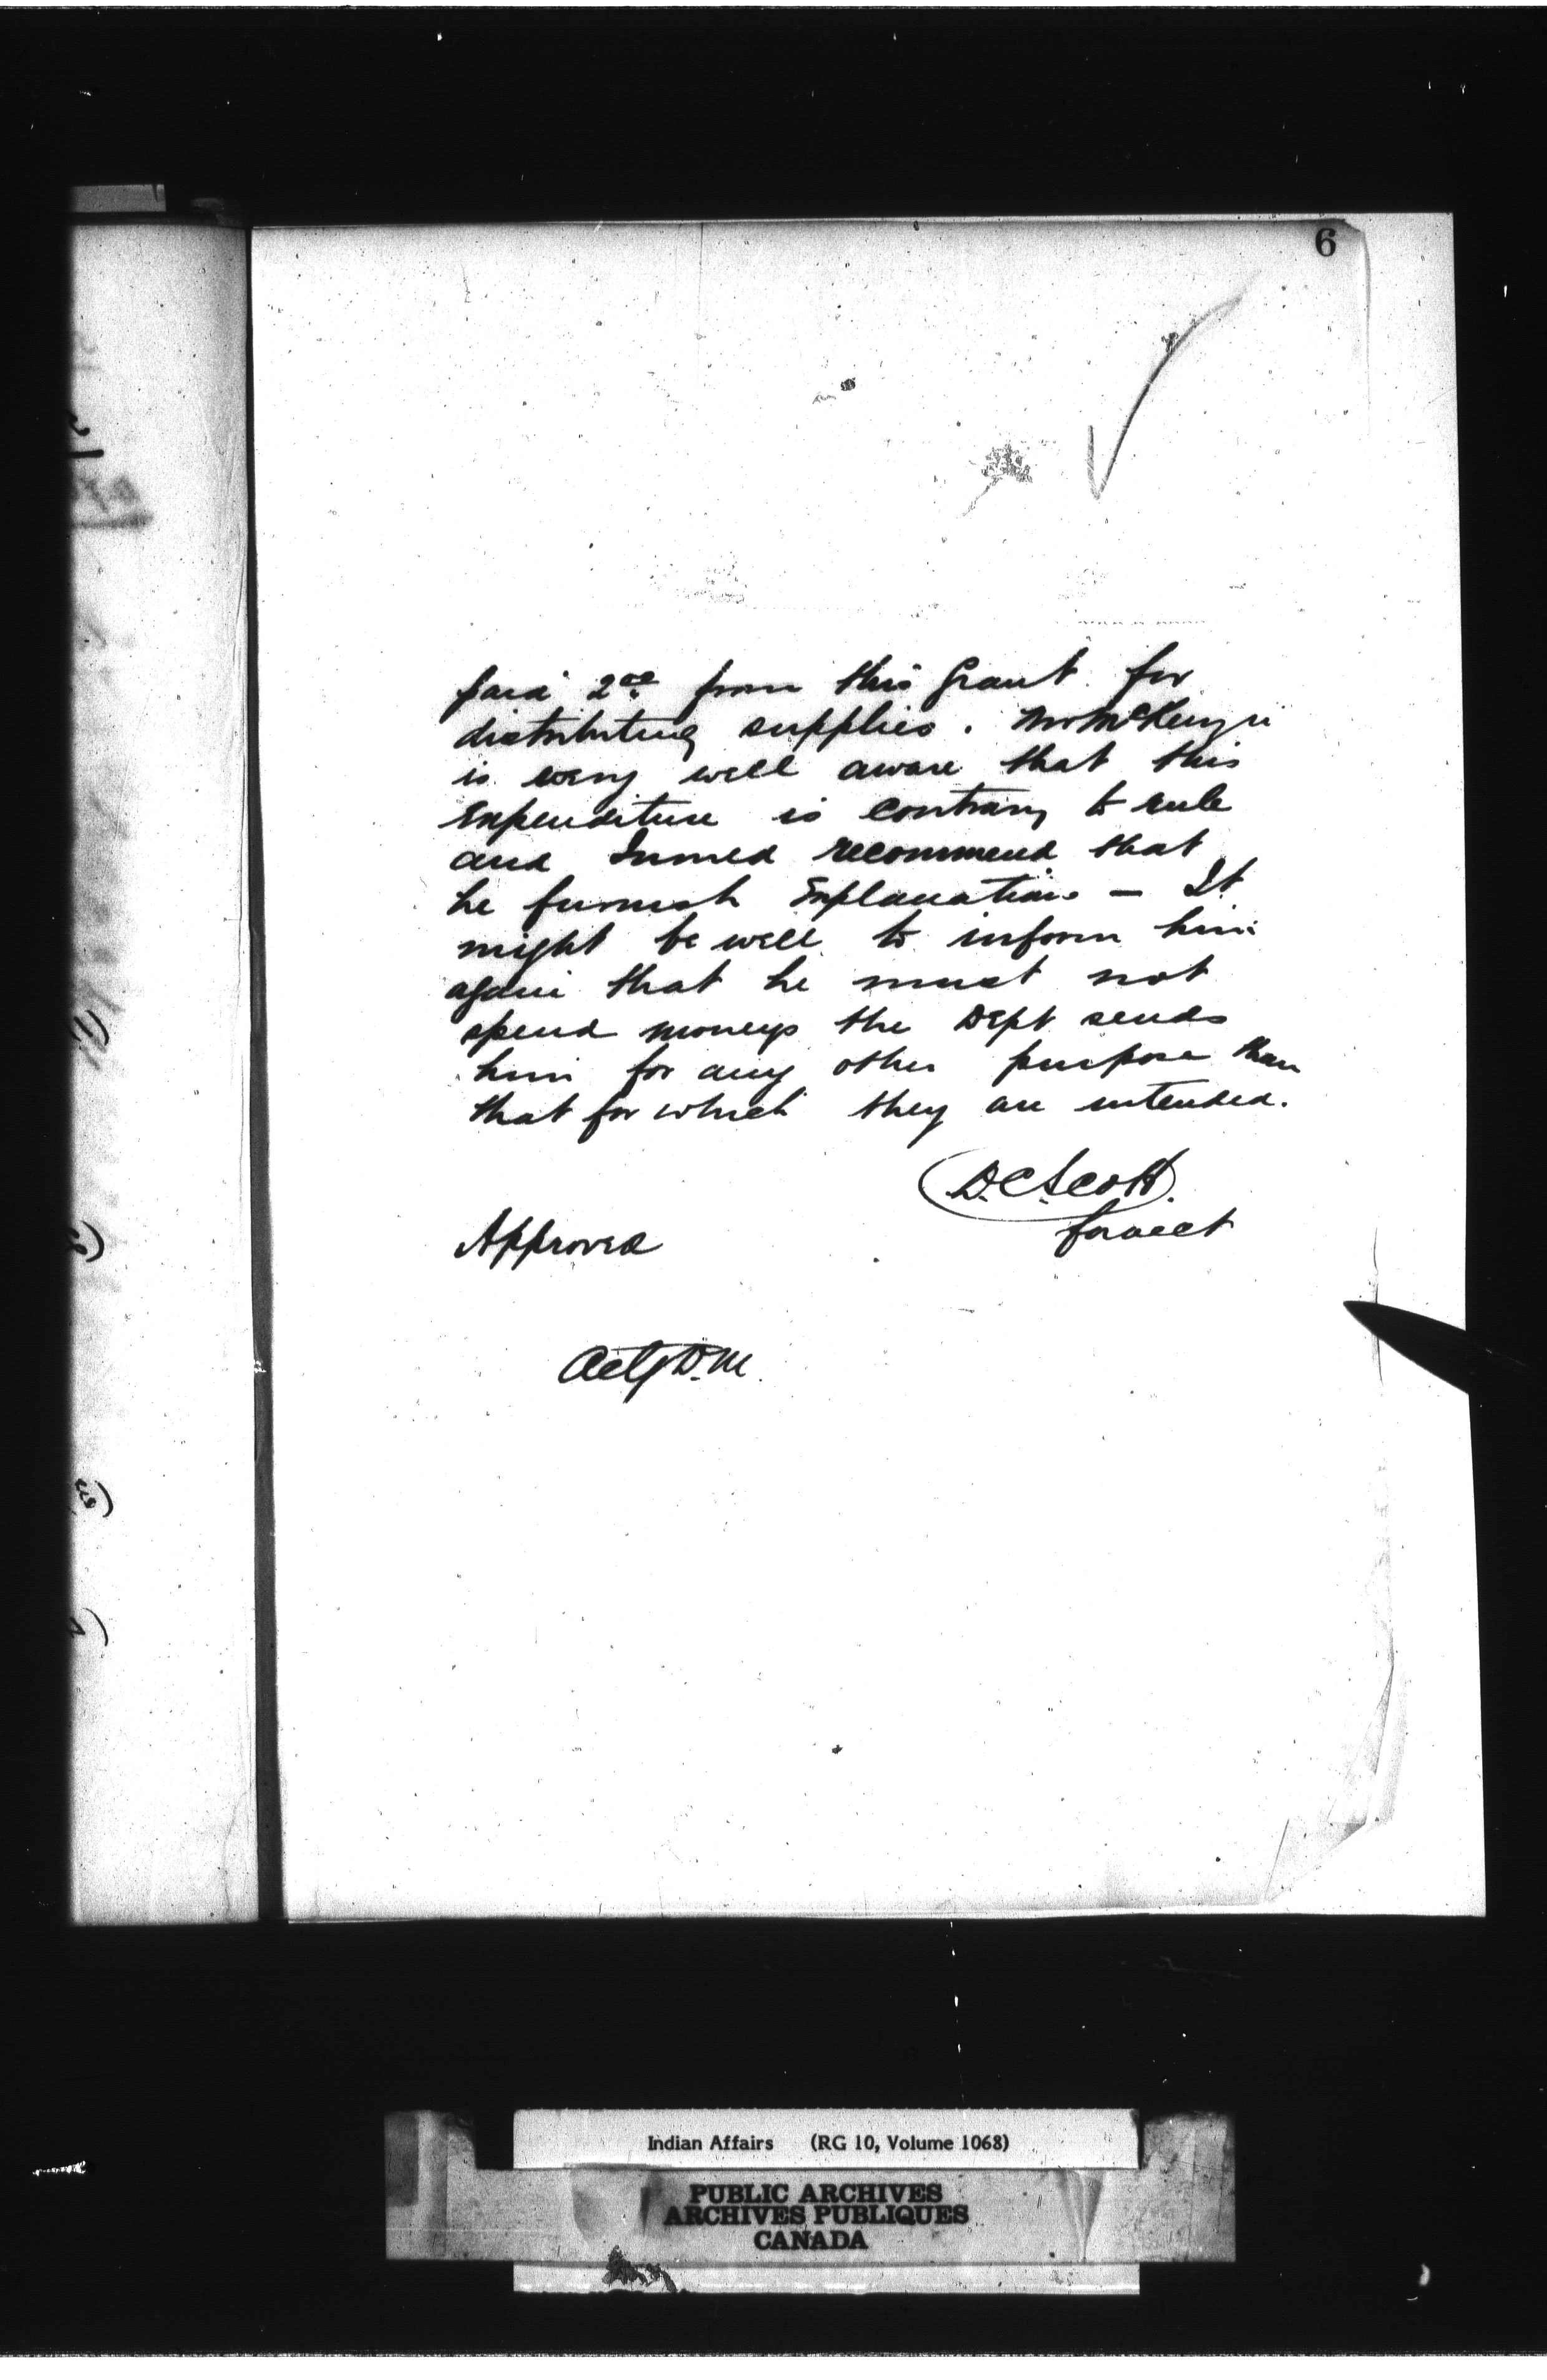 6
paid 2.00 from this Grant for
distributing supplies. Mr McKenzie
is very well aware that this
Expenditure is contrary to rule
and I would recommend that
he furnish Explanation — It
might be well to inform him
again that he must not
spend moneys the Dept sends
him for any other purpose than
that for which they are intended.
D.C. Scott.
for acct
Approved
Actg D.M.
Indian Affairs (RG 10, Volume 1068)
PUBLIC ARCHIVES
ARCHIVES PUBLIQUES
CANADA